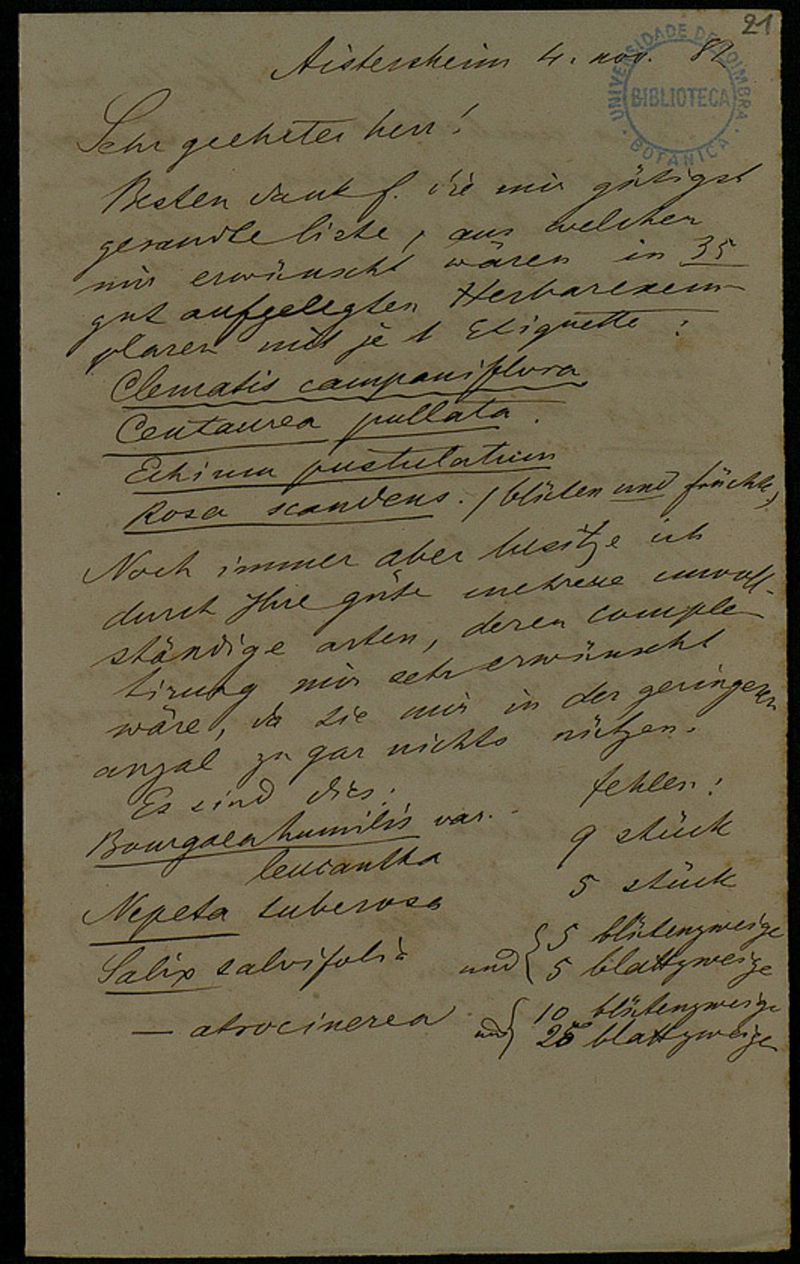 21
UNIVERSIDADE DE COIMBRA
BIBLIOTECA
BOTANICA
Aistersheim 4. nov. 82
Sehr geehrter herr!
Besten dank f. die mir gütigst
gesandte liste, aus welcher
mir erwünscht wären in 35
gut aufgelegten Herbarexem-
plaren mit je 1 Etiquette:
Clematis campaniflora
Centaurea pullata.
Echium pustulatum
Rosa scandens. (blüten und früchte)
Noch immer aber besitze ich
durch Ihre güte mehrere unvoll-
ständige arten, deren comple-
tirung mir sehr erwünscht
wäre, da sie mir in der geringeren
anzal zu gar nichts nützen.
Es sind dies: fehlen:
Bourgaea humilis var. 9 stück
leucantha
Nepeta tuberosa 5 stück
Salix salvifolia und { 5 blütenzweige
5 blattzweige
— atrocinerea und { 10 blütenzweige
25 blattzweige